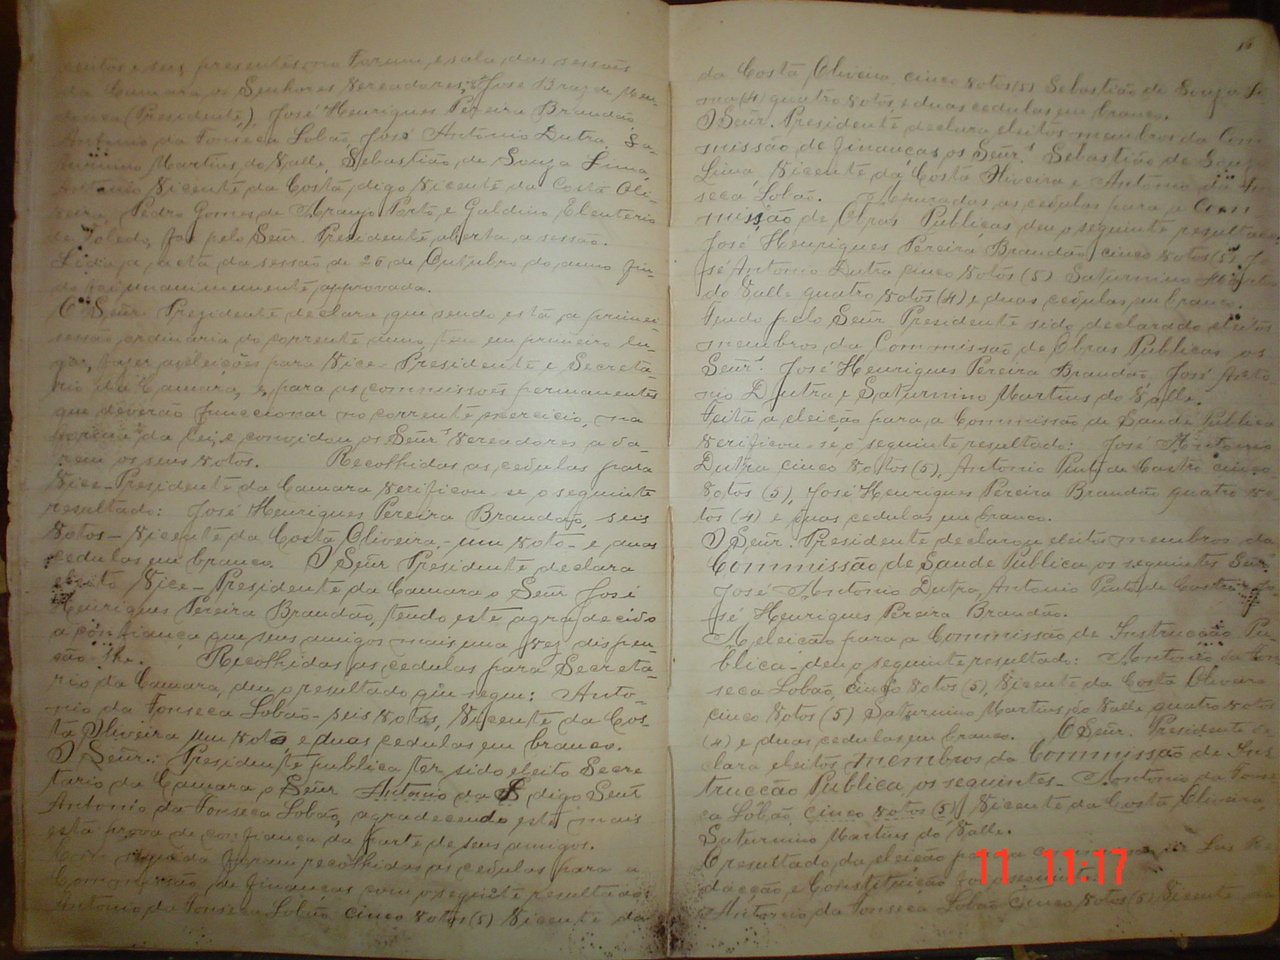 centos e seis presentes no Forum, e sala das sessões
da Camara os Senhores Vereadores; José Braz de Men-
donça (Presidente), José Henriques Pereira Brandão
Antonio da Fonseca Lobão, José Antônio Dutra, Sa-
turnino Martins do Valle, Sebastião de Souza Lima,
Antônio Vicente da Costa, digo Vicente da Costa Oli-
veira, Pedro Gomes de Araujo Porto e Galdino Eleuterio
de Toledo, foi pelo Señr. Presidente aberta a sessão.
Lida a acta da sessão de 26 de Outubro do anno fin-
do foi unanimemente approvada.
O Señr. Presidente declara que sendo esta a primei-
sessão ordinaria do corrente anno, tem em primeiro lu-
gar, fazer a eleições para Vice-Presidente e Secreta-
rio da Camara, e para as commissões permanentes
que deverão funccionar no corrente exercicio, na
forma da lei, e convidou os Señrs Vereadores a da-
rem os seus votos. Recolhidas as cedulas para
Vice-Presidente da Camara verificou-se o seguinte
resultado: José Henriques Pereira Brandão, seis
votos - Vicente da Costa Oliveira - um voto - e duas
cedulas em branco. O Señr Presidente declara
eleito Vice-Presidente da Camara o Señr José
Henriques Pereira Brandão, tendo este agradecido
a confiança que seus amigos mais uma vez dispen-
são-lhe. Recolhidas as cedulas para Secreta-
rio da Camara, deu o resultado que segue: Anto-
nio da Fonseca Lobão - seis votos, Vicente da Cos-
ta Oliveira um voto, e duas cedulas em branco.
O Señr. Presidente publica ter sido eleito Secre
tario da Camara o Señr Antonio da S digo Señr
Antonio da Fonseca Lobão, agradecendo este mais
esta prova de confiança da parte de seus amigos.
Em seguida foram recolhidas as cedulas para a
Commissão de finanças com o seguinte resultado:
Antonio da Fonseca Lobão cinco votos (5) Vicente da
16
da Costa Oliveira cinco votos (5) Sebastião de Souza Li
ma (4) quatro votos, e duas cedulas em branco.
O Señr. Presidente declara eleitos membros da Com
missão de finanças, os Señrs Sebastião de Souza
Lima, Vicente da Costa Oliveira e Antônio da Fon
seca Lobão. as cedulas para a Com
missão de Obras Publicas deu o seguinte resultado
José Henriques Pereira Brandão cinco votos (5) Jo
sé Antonio Dutra cinco votos (5) Saturnino Martins
do Valle quatro votos (4) e duas cedulas em branco.
Tendo pelo Señr Presidente sido declarado eleitos
membros da Commissão de Obras Publicas, os
Señrs José Henriques Pereira Brandão, José Anto
nio Dutra e Saturnino Martins do Valle.
Feita a eleição para a Commissão de Saude Publica
verificou-se o seguinte resultado: José Antonio
Dutra, cinco votos (5), Antonio Pinto de Castro cinco
votos (5), José Henriques Pereira Brandão quatro vo
tos (4) e duas cedulas em branco.
O Señr. Presidente declarou eleito membros da
Commissão de Saude Publica, os seguintes Señrs
José Antonio Dutra, Antonio Pinto de Castro, Jo
sé Henriques Pereira Brandão.
A eleição para a Commissão de Instrucção Pu
blica - deu o seguinte resultado: Antonio da Fon
seca Lobão, cinco votos (5), Vicente da Costa Oliveira
cinco votos (5) Saturnino Martins do Valle quatro votos
(4) e duas cedulas em branco. O Señr. Presidente de
clara eleitos membros da Commissão de Ins
trucção Publica, os seguintes - Antonio da Fonse
ca Lobão, cinco votos (5), Vicente da Costa Oliveira,
Saturnino Martins do Valle.
O resultado da eleição para a de Leis Re
dacção e Constituição foi o seguinte:
Antonio da Fonseca Lobão cinco votos (5) Vicente
11 11:17